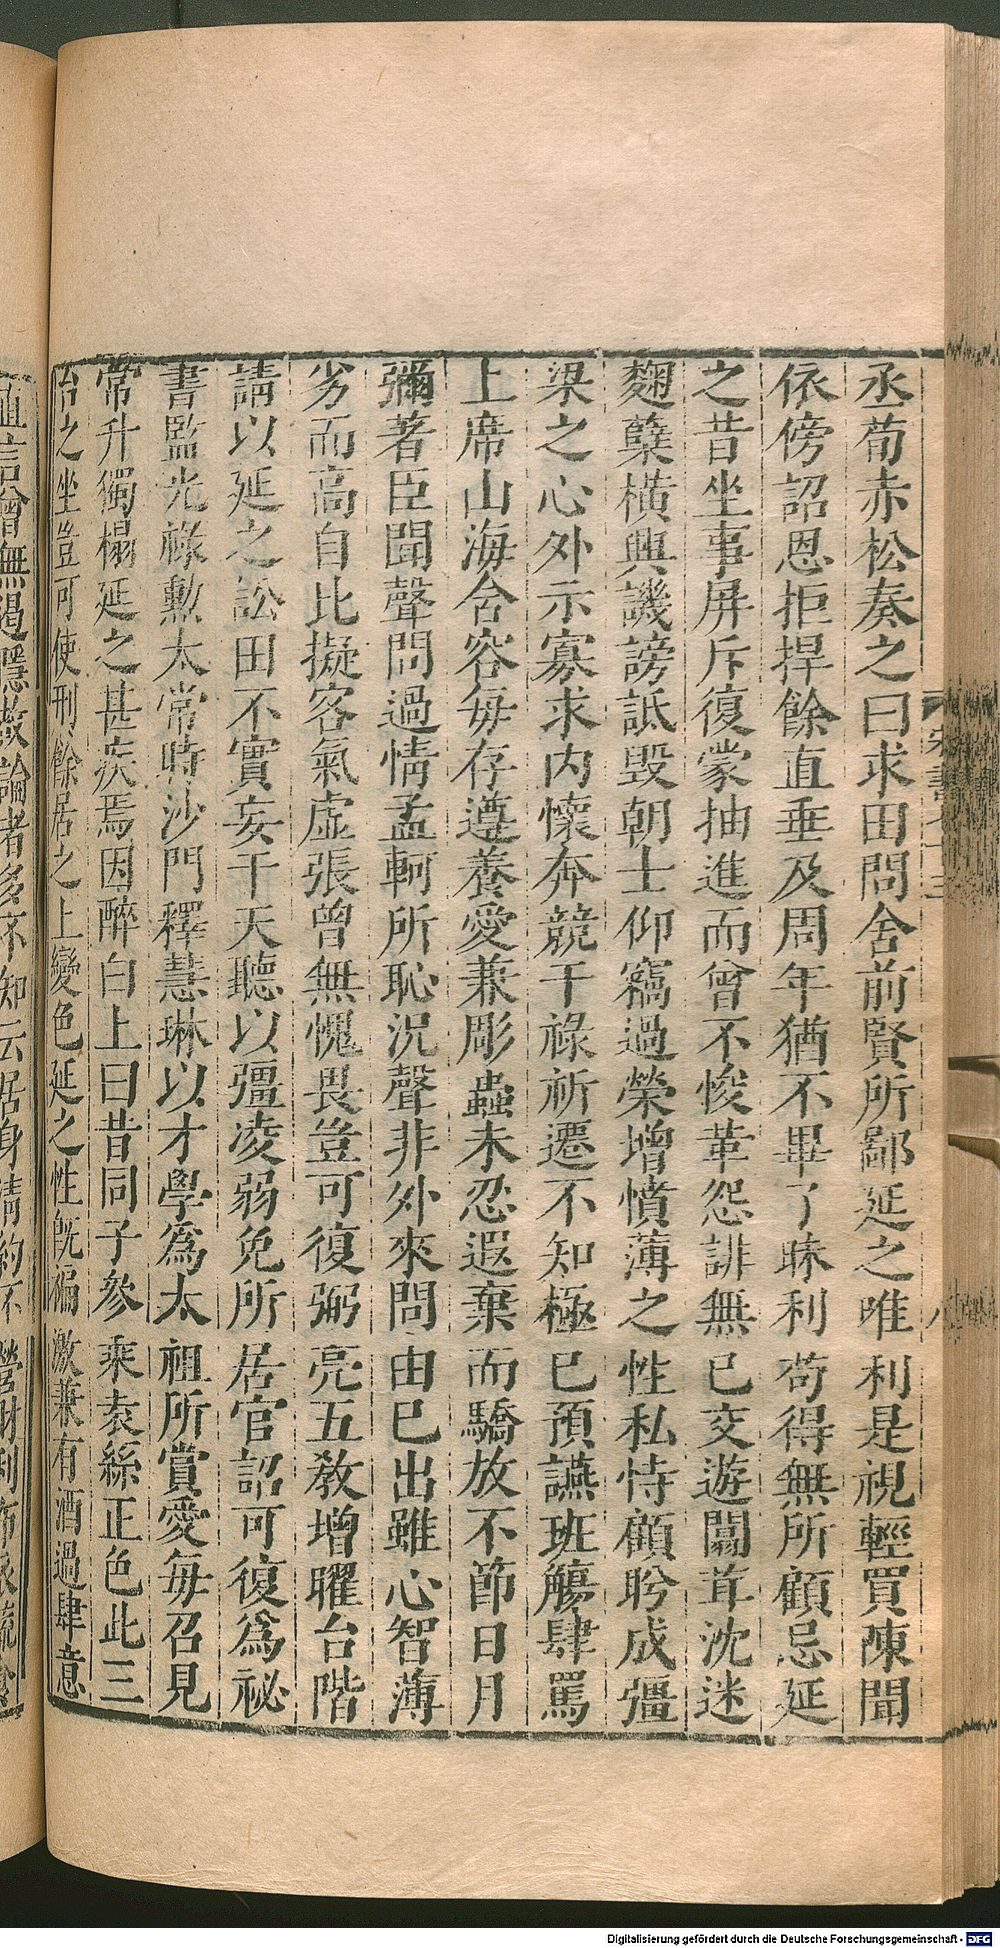 丞荀赤松奏之曰求田問舍前賢所鄙延之唯利是視輕買陳聞
依傍詔恩拒捍餘直垂及周年猶不畢了昧利苟得無所顧忌延
之昔坐事屏斥復蒙抽進而曾不悛革怨誹無已交遊闒茸沈迷
麴糵橫興譏謗詆毀朝士仰竊過榮增憤薄之性私恃顧盻成彊
梁之心外示寡求内懷奔競干祿祈遷不知極已預讌班觴肆罵
上席山海含容每存遵養愛兼彫蟲未忍遐棄而驕放不節日月
彌著臣聞聲問過情孟軻所恥況聲非外來問由已出雖心智薄
劣而高自比擬客氣虛張曾無愧畏豈可復弼亮五教增曜台階
請以延之訟田不實妄干天聽以彊凌弱免所居官詔可復為祕
書監光祿勲太常時沙門釋慧琳以才學為太祖所賞愛每召見
常升獨榻延之甚疾焉因醉白上曰昔同子參乘袁絲正色此三
台之坐豈可使刑餘居之上變色延之性旣褊激兼有酒過肆意
直言曾無遏隱故論者多不知云居身清約不營財利布衣蔬食
宋書七十三
八
Digitalisierung gefördert durch die Deutsche Forschungsgemeinschaft - DFG